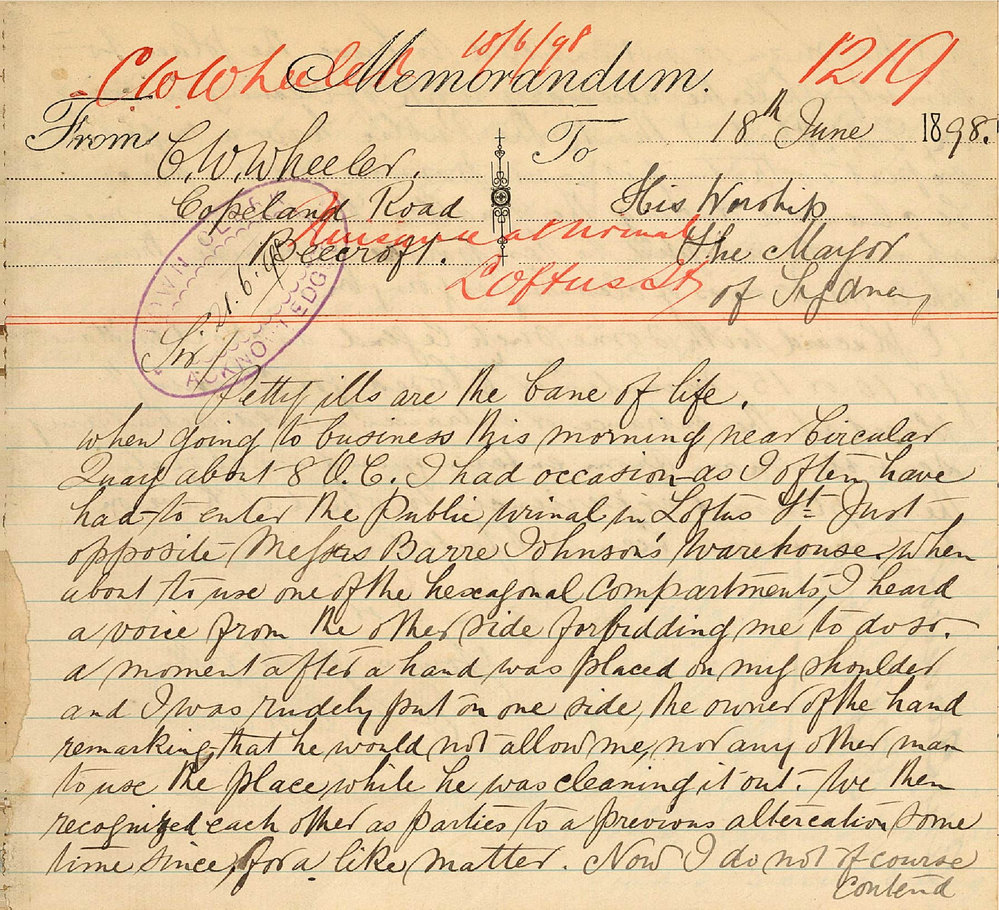 C. W. Wheeler 18/6/98 1219
Memorandum.
From To 18th June 1898.
C. W. Wheeler.
Copeland Road His Worship
Beecroft. The Mayor
of Sydney
Nuisance at Urinal
Loftus St
TOWN CLERK
21.6.98
ACKNOWLEDGED
Sir
Petty ills are the bane of life.
when going to business this morning near Circular
Quay about 8 O.C. I had occasion - as I often have
had - to enter the Public urinal in Loftus St. Just
opposite Messrs Barre Johnson's warehouse. When
about to use one of the hexagonal compartments, I heard
a voice from the other side forbidding me to do so.
a moment after a hand was placed on my shoulder
and I was rudely put on one side, the owner of the hand
remarking, that he would not allow me, nor any other man
to use the place while he was cleaning it out. We then
recognized each other as parties to a previous altercation some
time since, for a like matter. Now I do not of course
contend